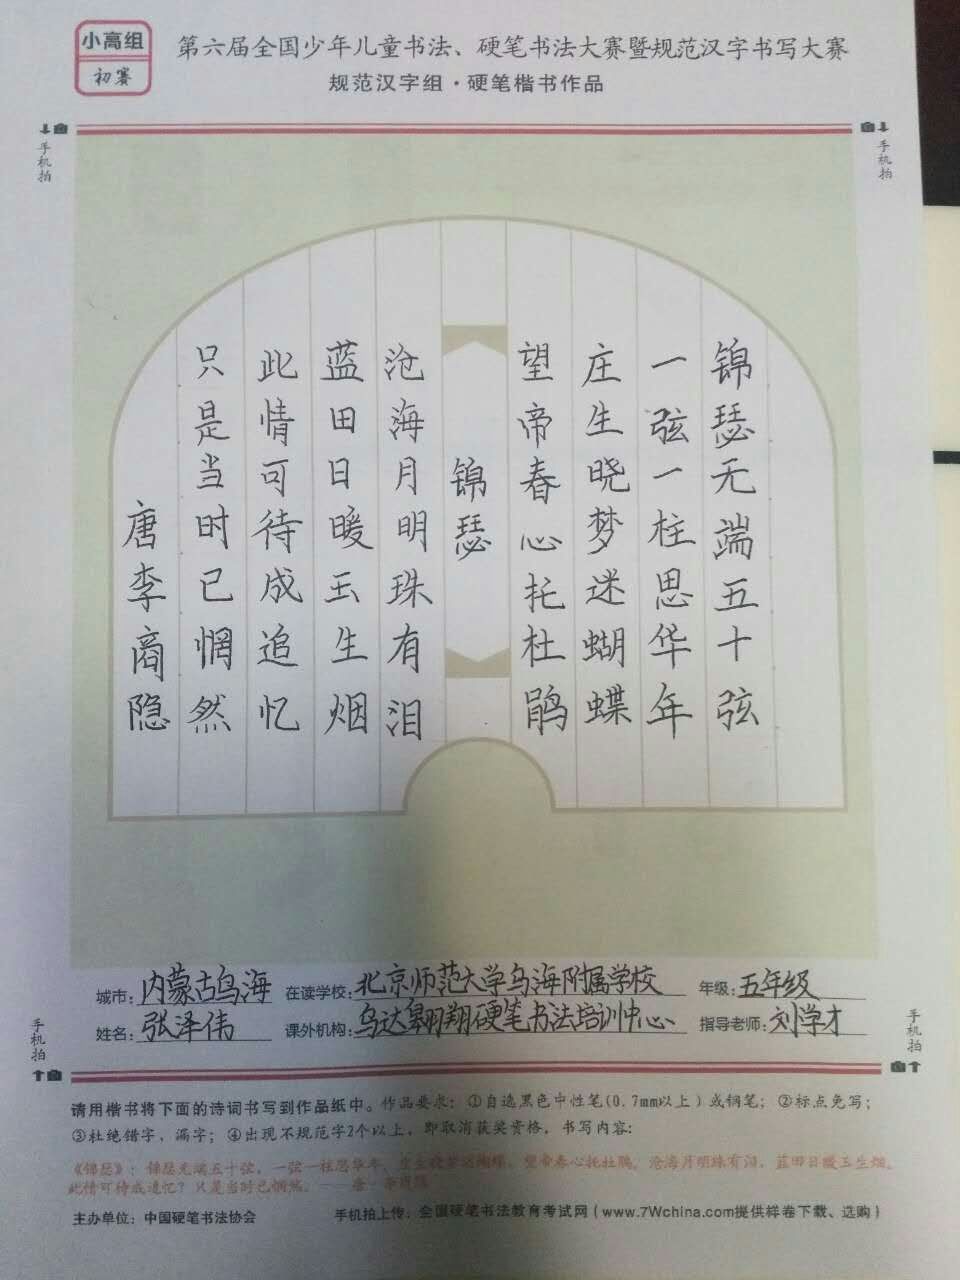 小高组
初赛
第六届全国少年儿童书法、硬笔书法大赛暨规范汉字书写大赛
规范汉字组·硬笔楷书作品
手机拍
手机拍
锦瑟无端五十弦
一弦一柱思华年
庄生晓梦迷蝴蝶
望帝春心托杜鹃
锦瑟
沧海月明珠有泪
蓝田日暖玉生烟
此情可待成追忆
只是当时已惘然
唐李商隐
城市:内蒙古乌海 在读学校:北京师范大学乌海附属学校 年级:五年级
姓名:张泽伟 课外机构:乌达翱翔硬笔书法培训中心 指导老师:刘学才
手机拍
手机拍
请用楷书将下面的诗词书写到作品纸中。作品要求:①自选黑色中性笔(0.7mm以上)或钢笔;②标点免写;
③杜绝错字,漏字;④出现不规范字2个以上,即取消获奖资格,书写内容:
《锦瑟》:锦瑟无端五十弦,一弦一柱思华年。庄生晓梦迷蝴蝶,望帝春心托杜鹃。沧海月明珠有泪,蓝田日暖玉生烟。
此情可待成追忆?只是当时已惘然。——唐·李商隐
主办单位:中国硬笔书法协会 手机拍上传:全国硬笔书法教育考试网(www.7Wchina.com提供样卷下载、选购)